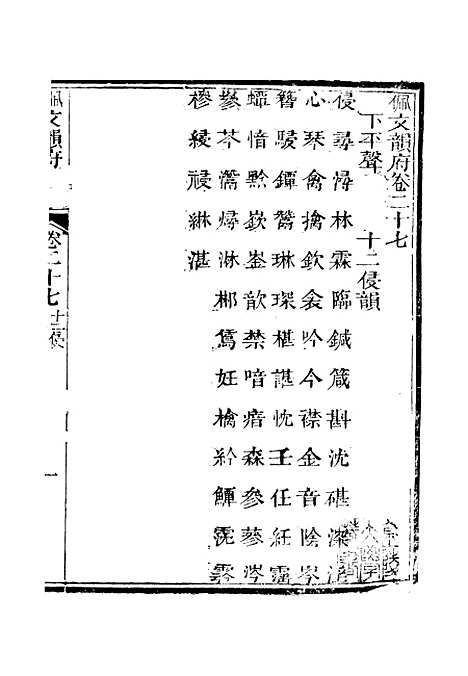 佩文韻府卷二十七
下平聲 十二侵韻
侵尋潯林霖臨鍼箴斟沈碪深
心琴禽擒欽衾吟今襟金音陰岑
簪駸鐔鶯琳琛椹諶忱壬任紝霪
蟫愔黔嶔崟歆禁喑瘖森參蔘涔
葠芩灊燖淋郴篤妊檎衿鱏霃霒
槮綅祲綝湛
佩文韻府
卷二十七 十二侵
一